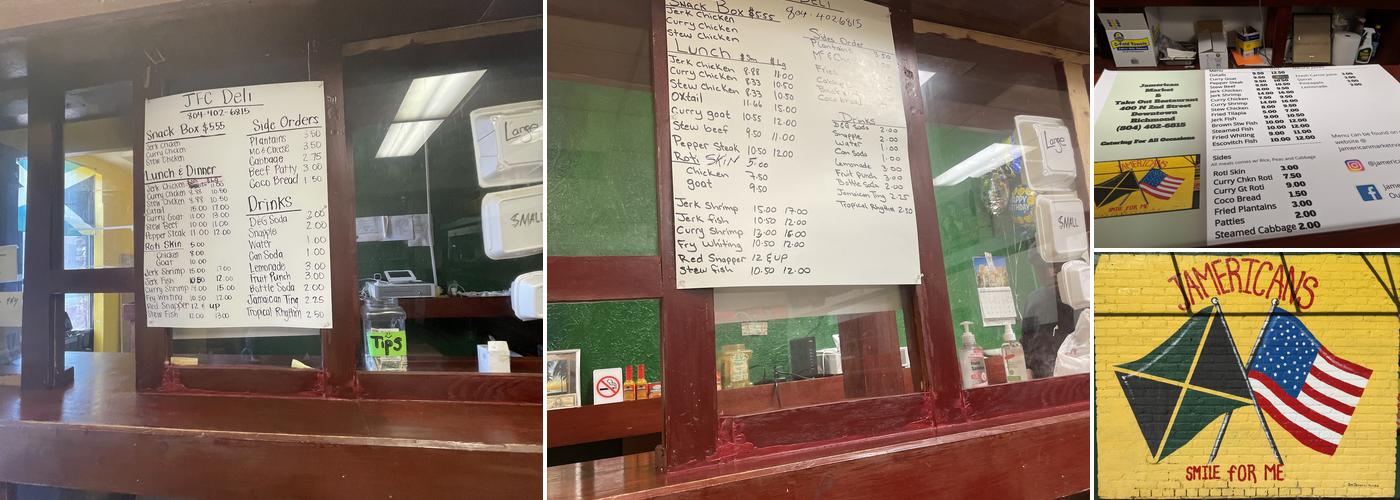 JFC Deli
804-402-6815
Snack Box $555
Jerk Chicken
Curry Chicken
Stew Chicken
Lunch & Dinner
Jerk Chicken
Curry Chicken 8.88 10.50
Stew Chicken 8.88 10.50
Oxtail 15.00 17.00
Curry Goat 11.00 13.00
Stew Beef 10.00 11.00
Pepper Steak 11.00 12.00
Roti Skin 5.00
Chicken 8.00
Goat 10.00
Jerk Shrimp 15.00 17.00
Jerk Fish 10.50 12.00
Curry Shrimp 14.00 15.00
Fry Whiting 10.50 12.00
Red Snapper 12 & up
Stew Fish 12.00 13.00
Side Orders
Plantains 3.50
Mc & Cheese 3.50
Cabbage 2.75
Beef Patty 3.00
Coco Bread 1.50
Drinks
D&G Soda 2.00
Snapple 2.00
Water 1.00
Can Soda 1.00
Lemonade 3.00
Fruit Punch 3.00
Bottle Soda 2.00
Jamaican Ting 2.25
Tropical Rhythm 2.50
Large
SMALL
Tips
DELI
Snack Box $5.55 804-4026815
Jerk Chicken
Curry Chicken
Stew Chicken
Lunch $Sm $Lg
Jerk chicken 8.88 11.00
Curry chicken 8.33 10.50
Stew Chicken 8.33 10.50
Oxtail 11.66 15.00
Curry goat 10.55 12.00
Stew beef 9.50 11.00
Pepper Steak 10.50 12.00
Roti SKIN 5.00
Chicken 7.50
goat 9.50
Jerk Shrimp 15.00 17.00
Jerk fish 10.50 12.00
Curry Shrimp 13.00 16.00
Fry Whiting 10.50 12.00
Red Snapper 12 & up
Stew fish 10.50 12.00
Sides Order
Plantains 3.50
Fried
Coco bread
Drinks
D&G Soda 2.00
Snapple 2.00
Water 1.00
Can Soda 1.00
Lemonade 3.00
Fruit punch 3.00
Bottle Soda 2.00
Jamaican Ting 2.25
Tropical Rhythm 2.50
Large
SMALL
Jamerican
Market
&
Take Out Restaurant
400 N 2nd Street
Downtown
Richmond
(804) 402-6815
Catering For All Occasions
JAMERICANS
SMILE FOR ME
Menu
Oxtails 9.50 12.50
Curry Goat
Pepper Steak
Stew Beef
Jerk Chicken
Jerk Shrimp 14.00 16.00
Curry Chicken
Curry Shrimp 14.00 16.00
Stew Chicken
Fried Tilapia
Jerk Fish
Brown Stw Fish 10.00 12.00
Steamed Fish 10.00 12.00
Fried Whiting 9.00 11.00
Escovitch Fish 10.00 12.00
Fresh Carrot Juice 3.00
Sorrel 3.00
Pineapple 3.00
Lemonade 3.00
Sides
All meals comes w/ Rice, Peas and Cabbage
Roti Skin 3.00
Curry Chkn Roti 7.50
Curry Gt Roti 9.00
Coco Bread 1.50
Fried Plantains 3.00
Patties 2.00
Steamed Cabbage 2.00
Menu can be found
website @
jamericanmarketva
@jamerican
JAMERICANS
SMILE FOR ME